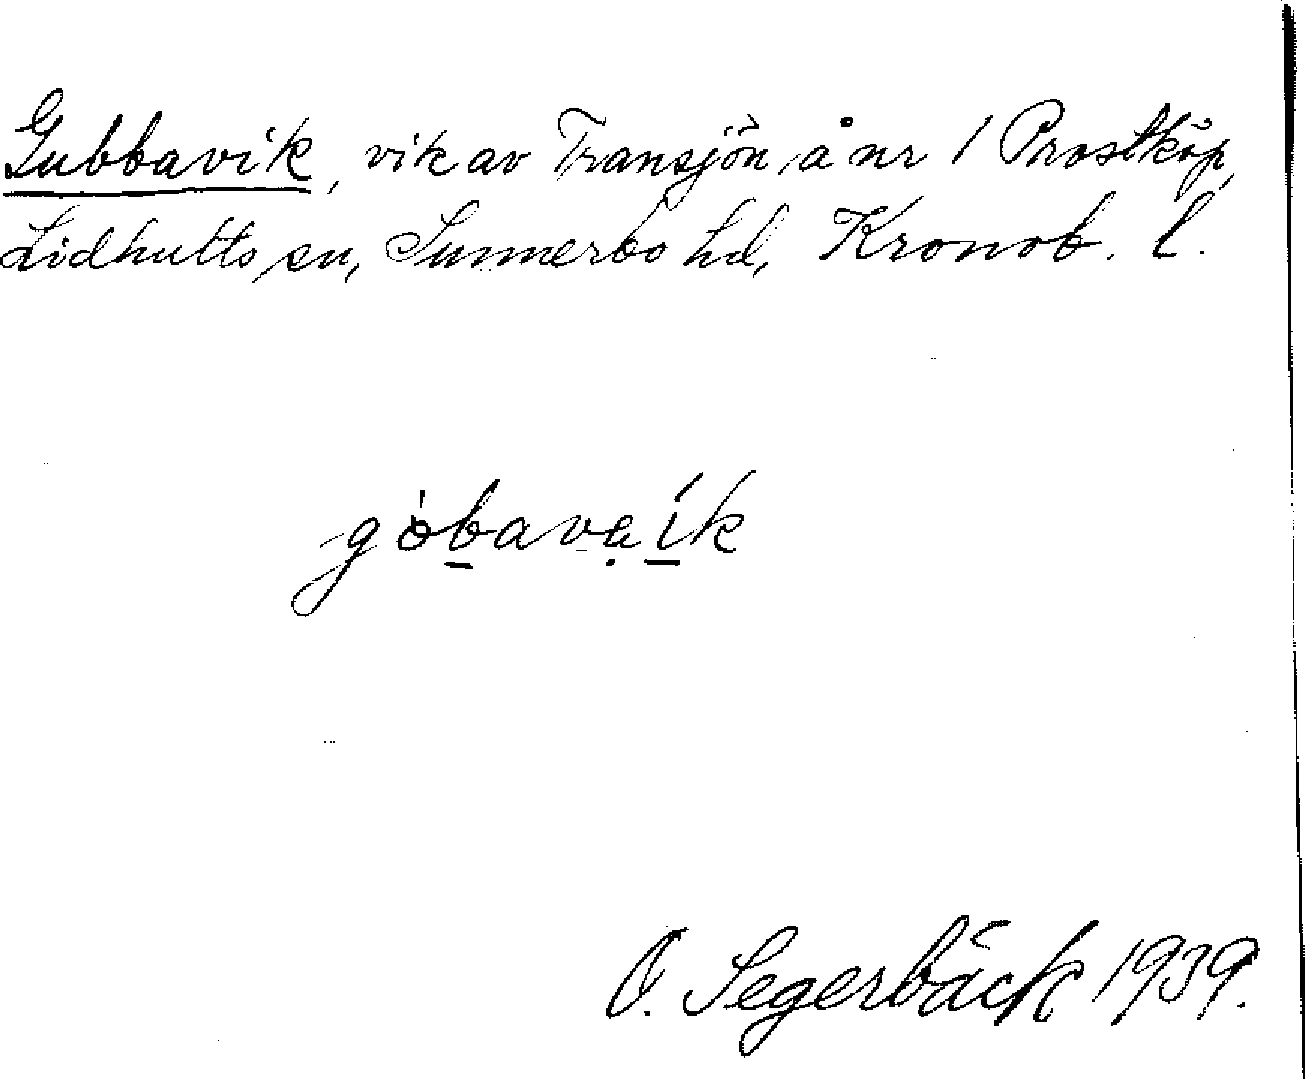 Gubbavik, vik av Transjön å nr 1 Prostköp,
Lidhults sn, Sunnerbo hd, Kronob. l.
góbavaík
O. Segerbäck 1939.